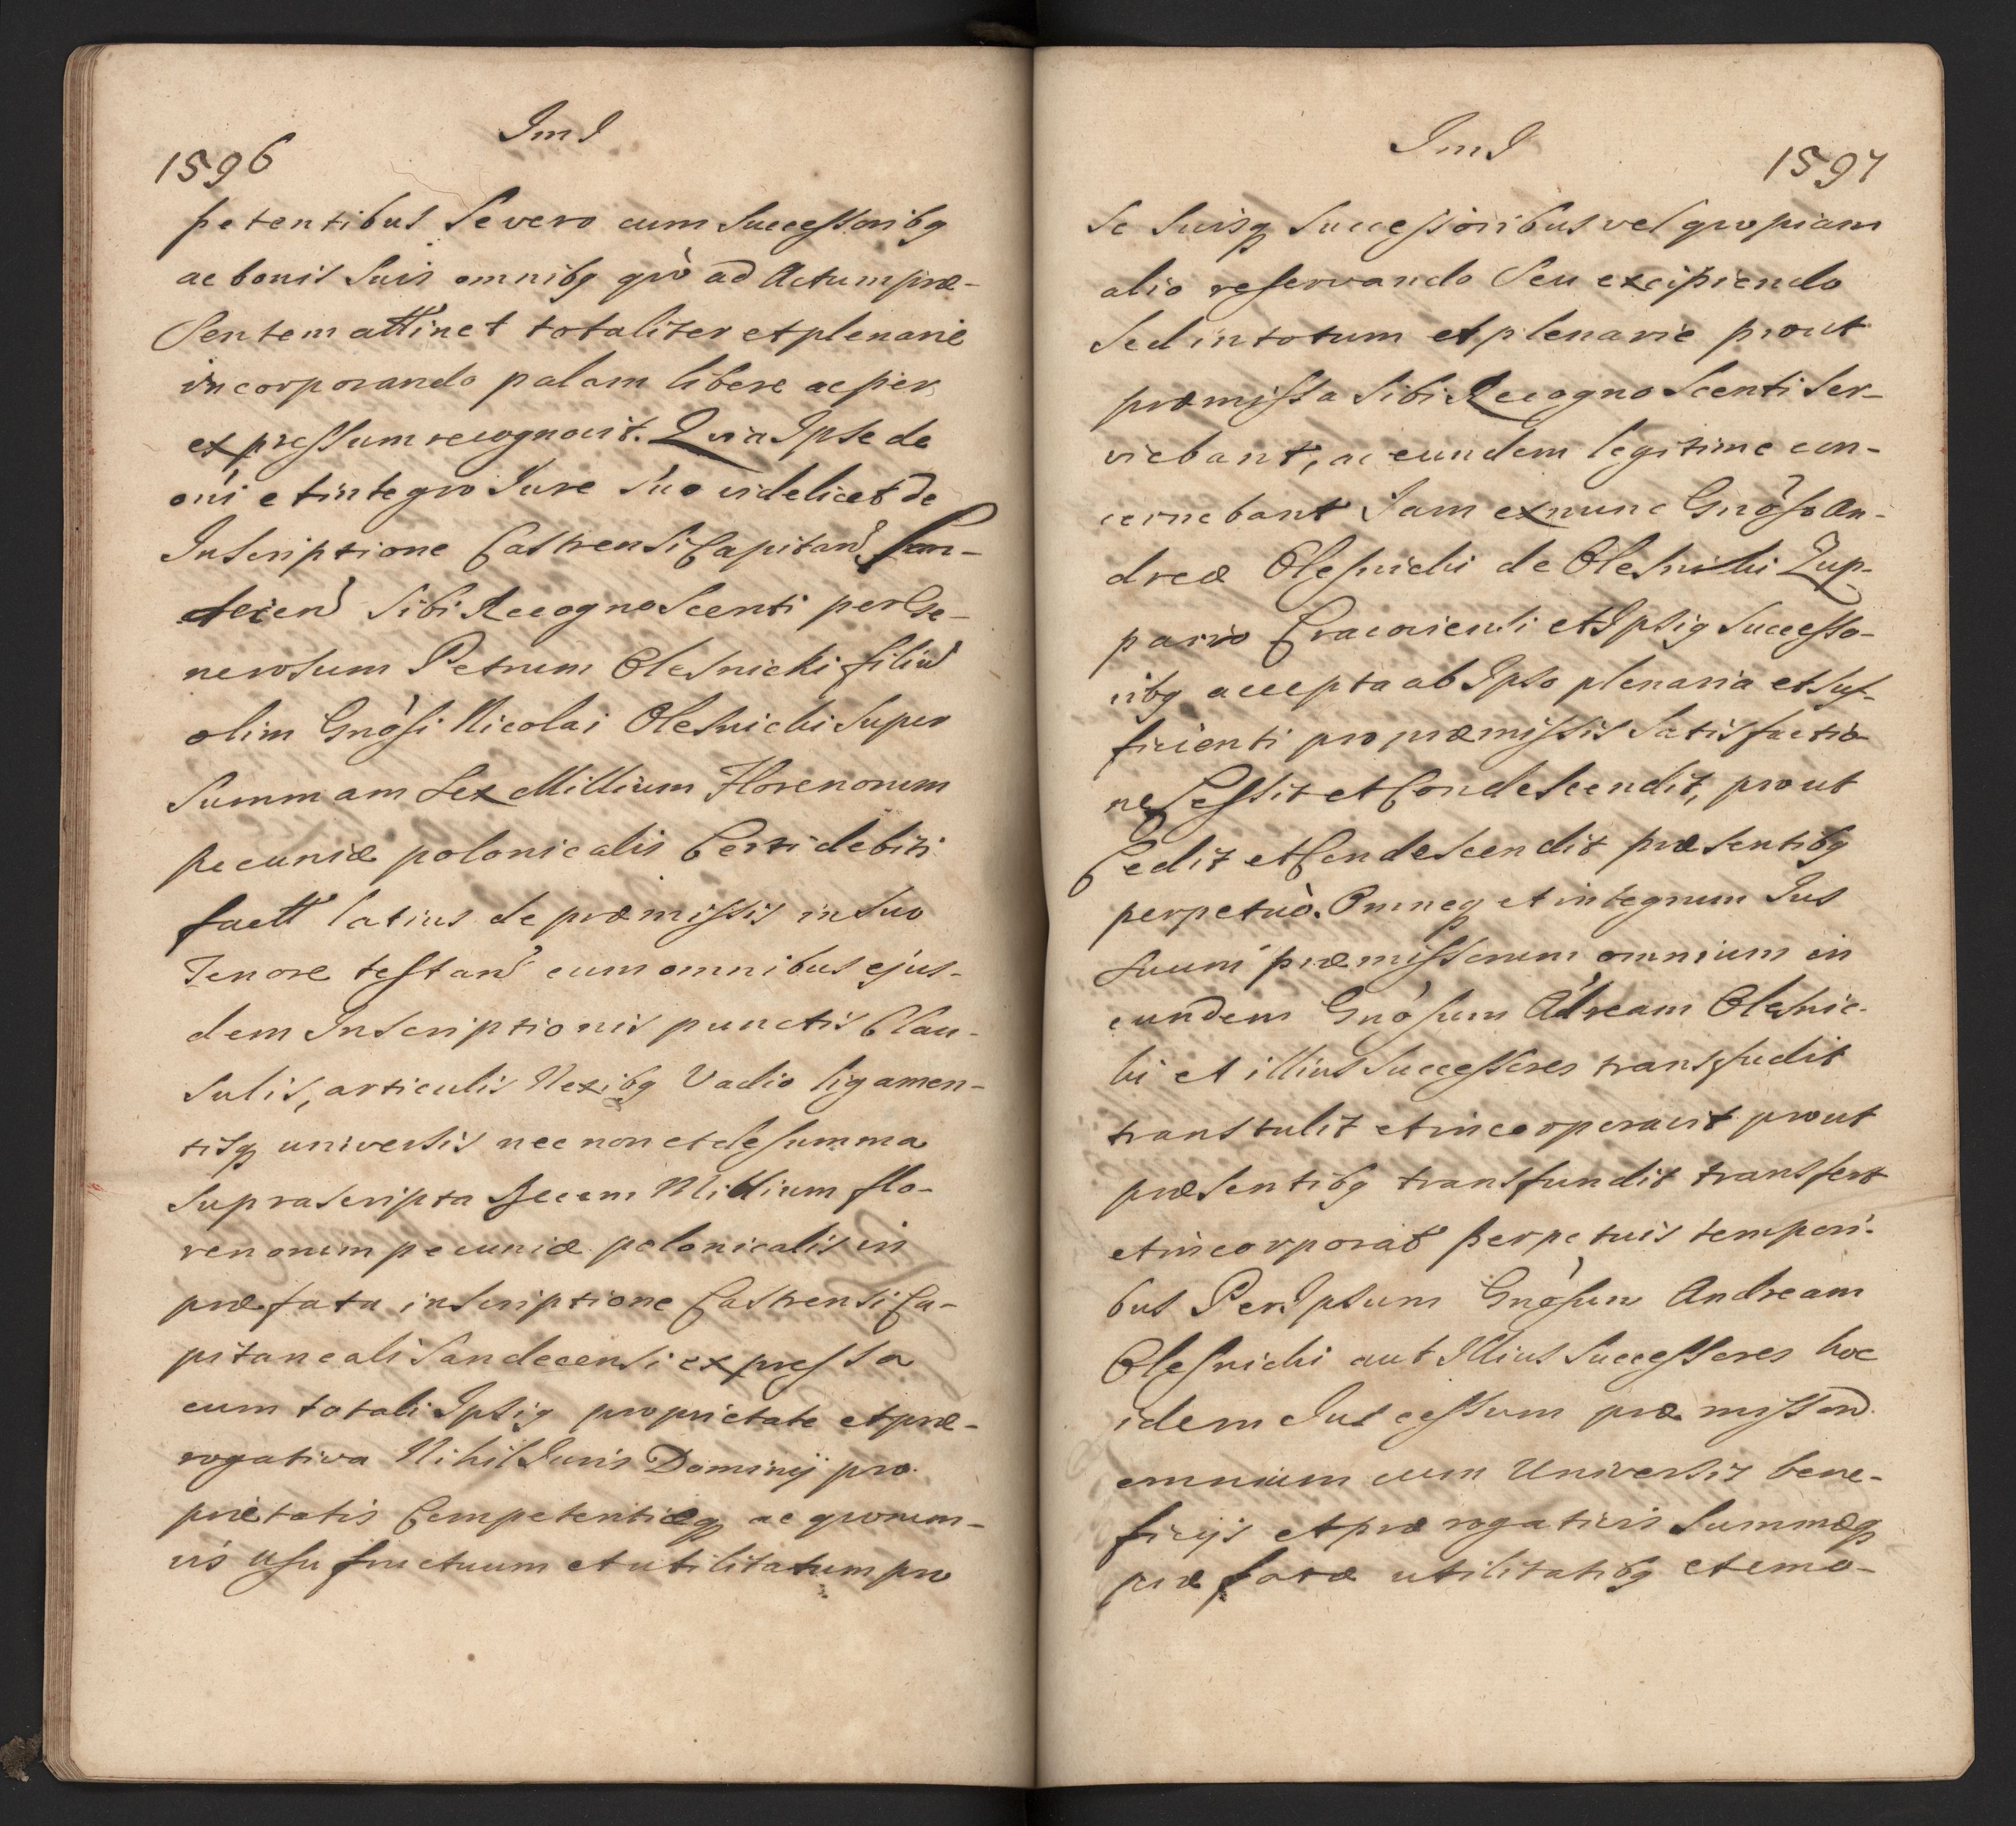 ImJ
1596
petentibus Se vero cum Successoribq
ac bonis Suis omnibq quò ad Actum præ-
Sentem attinet totaliter et plenarie
incorporando palam libere ac per
expressum recognovit. Quia Ipse de
oni et integro Jure Suo videlicet de
Inscriptione Castrensi Capitan̄ San-
decien̄ Sibi Recognoscenti per Ge-
nerosum Petrum Olesnicki filiū
olim Gnosi Nicolai Olesnicki Super
Summam Sex Millium Florenorum
pecuniæ polonicalis Certi debiti
fact̄ latius de præmissis in Suo
Tenore testan̄ cum omnibus ejus-
dem Inscriptionis punctis Clau-
Sulis, articulis Nexibq Vadio ligamen-
tisq universis nec non et de Summa
Supra Scripta Decem Millium flo-
renorum pecuniæ polonicalis in
præfata inscriptione Castrensi Ca-
pitaneali Sandecensi expressa
cum totali Ipsiq proprietate et præ-
rogativa Nihil Juris Dominij pro-
prietatis Competentiæq ac quorum-
vis Usu fructuum et utilitatum pro
ImJ
1597
Se Suisq Successoribus vel quopiam
alio reservando Seu excipiendo
Sed in totum et plenarie prout
præmissa Sibi Recognoscenti Ser-
viebant, ac eundem legitime con-
cernebant Jam ex nunc Gnoso An-
dreæ Olesnicki de Olesniki Zup-
pario Cracoviensi et Ipsiq Successo-
ribq accepta ab Ipso plenaria et suf-
ficienti pro præmissis Satisfactio-
ne Cessit et Condescendit, prout
Cedit et Condescendit præsentibq
perpetuò. Omneq et integrum Jus
Suum præmissorum omnium in
eundem Gnosum Adream Olesnic-
ki et illius Successores transfudit
transtulit et incorporavit prout
præsentibq transfundit transfert
et incorporat perpetuis tempori-
bus Per Ipsum Gnosum Andream
Olesnicki aut Illius Successores hoc
idem Jus cessum præmissor̄
omnium cum Universis bene-
ficijs et prærogativis Summæq
præfatæ utilitatibq et emo-